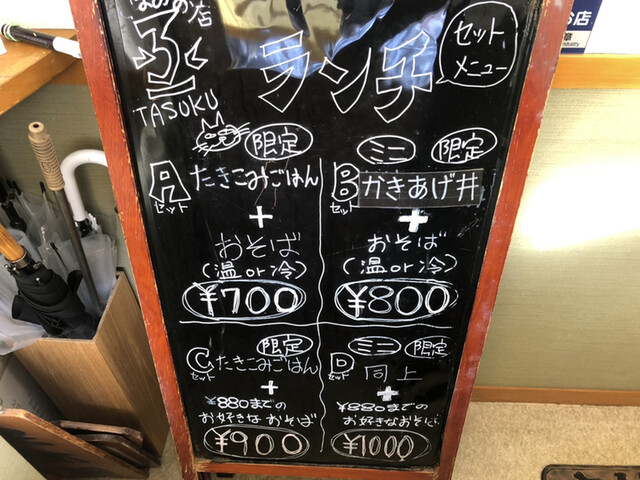 の店
TASUKU
ランチ
セット
メニュー
限定
Aセット
たきこみごはん
+
おそば
(温or冷)
¥700
ミニ 限定
Bセット
かきあげ丼
+
おそば
(温or冷)
¥800
限定
Cセット
たきこみごはん
+
¥880までの
お好きなおそば
¥900
ミニ 限定
Dセット
同上
+
¥880までの
お好きなおそば
¥1000